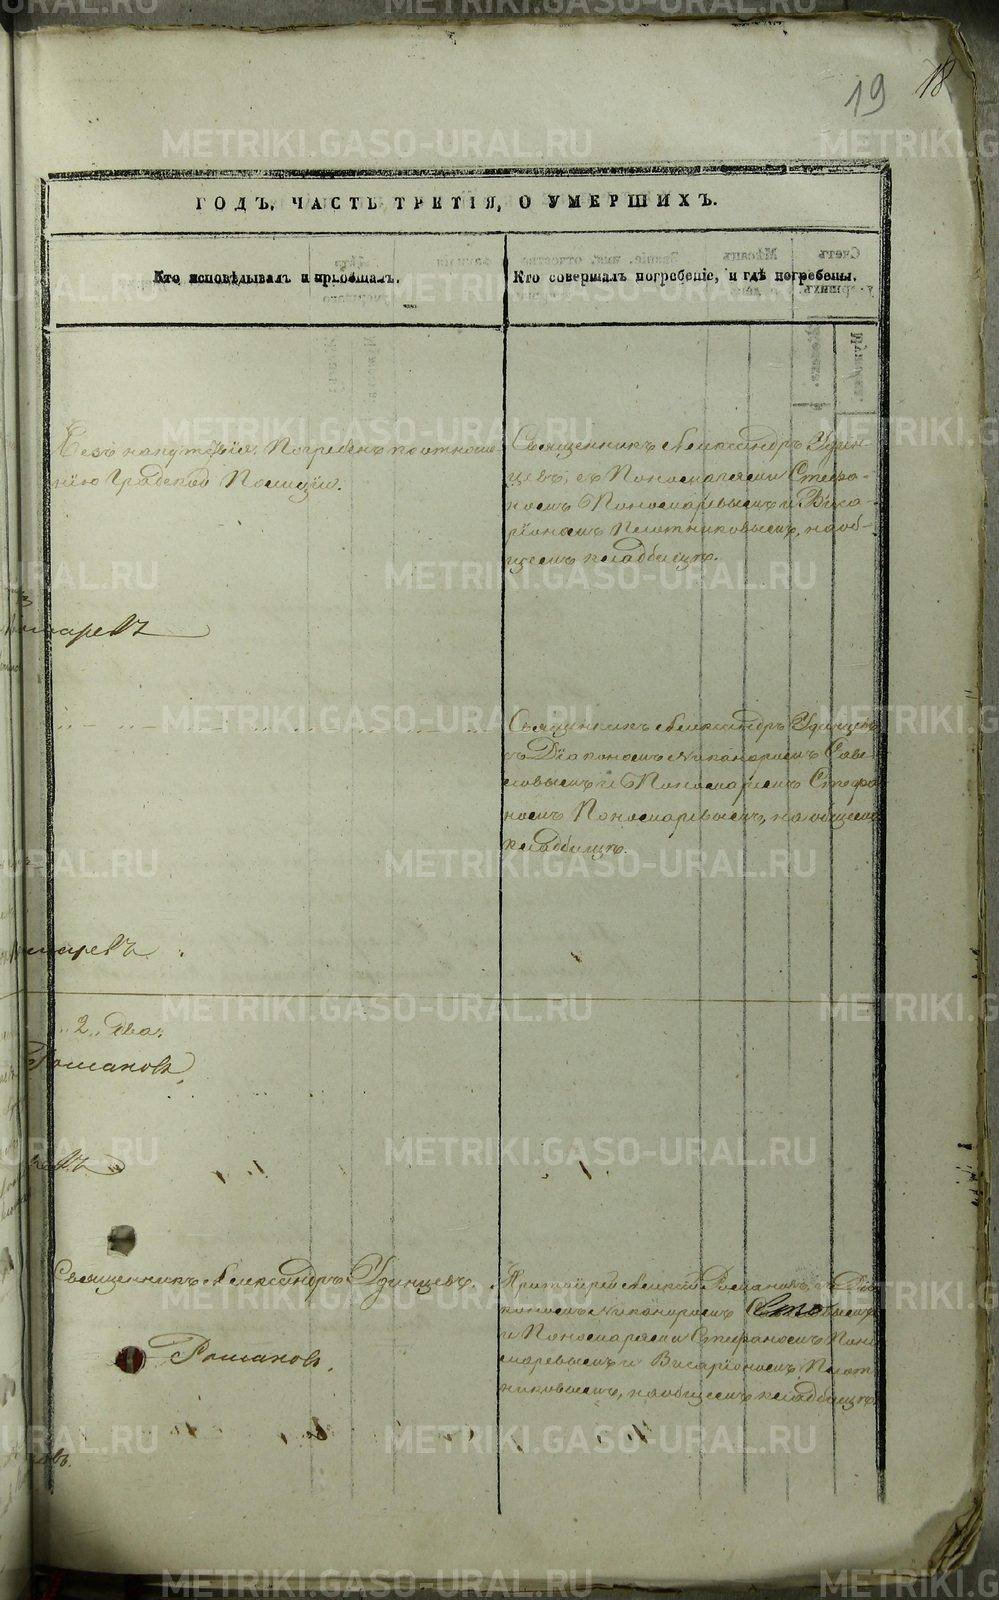 19 18
ГОДЪ, ЧАСТЬ ТРЕТІЯ, О УМЕРШИХЪ.
Кто исповѣдывалъ и пріобщалъ.
Кто совершалъ погребеніе, и гдѣ погребены.
Безъ напутствія. Погребенъ по отноше
нію Градской Полиціи.
Священникъ Александръ Удин-
цевъ, съ Пономарями Стефа-
номъ Пономаревымъ и Висса-
ріономъ Плотниковымъ, на об-
щемъ кладбищѣ.
Священникъ Александръ Удинцевъ
съ Діакономъ Никаноромъ
и Пономаремъ Стефа
номъ Пономаревымъ, на общемъ
кладбищѣ.
2, два.
Романовъ
Священникъ Александръ Удинцевъ.
Романовъ.
Протоіерей Алексій Романовъ, съ Діа
кономъ Никаноромъ
и Пономарями Стефаномъ Поно
маревымъ и Виссаріономъ Плот
никовымъ, на общемъ кладбищѣ.
METRIKI.GASO-URAL.RU